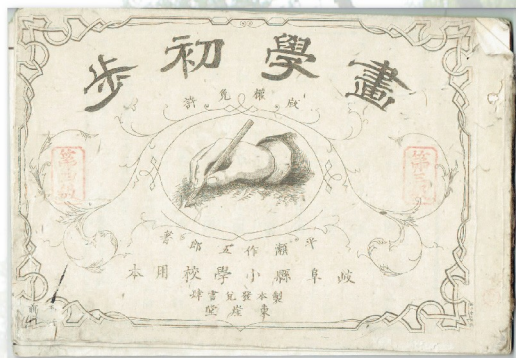 畫學初步
版權免許
平瀬作五郎著
岐阜縣小學校用本
製本發兌書肆
東崖堂